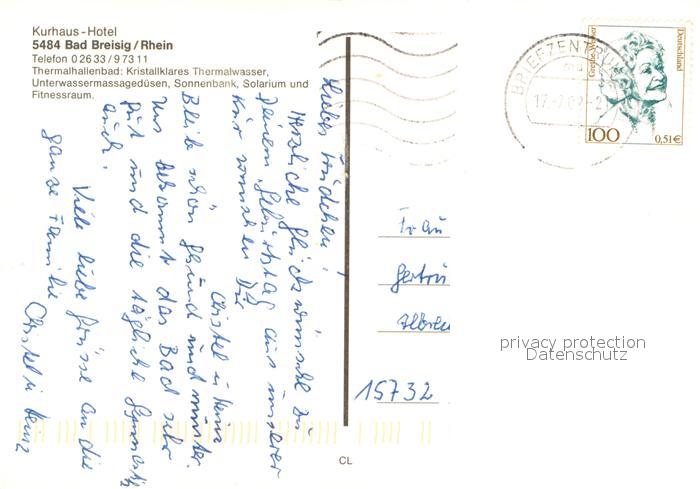 Kurhaus - Hotel
5484 Bad Breisig / Rhein
Telefon 0 26 33 / 9 73 11
Thermalhallenbad: Kristallklares Thermalwasser,
Unterwassermassagedüsen, Sonnenbank, Solarium und
Fitnessraum.
Herzliche Glückwünsche zu
Deinem Geburtstag aus unserer
Kur wünschen Dir
Christel u. Heinz
Bleib schön gesund und munter.
Uns bekommt das Bad sehr
gut und die tägliche Gymnastik
auch.
Viele liebe Grüsse an die
ganze Familie
Christel u. Heinz
BRIEFZENTRUM
Grethe Weiser
Deutschland
100
0,51€
Frau
15732
privacy protection
Datenschutz
CL